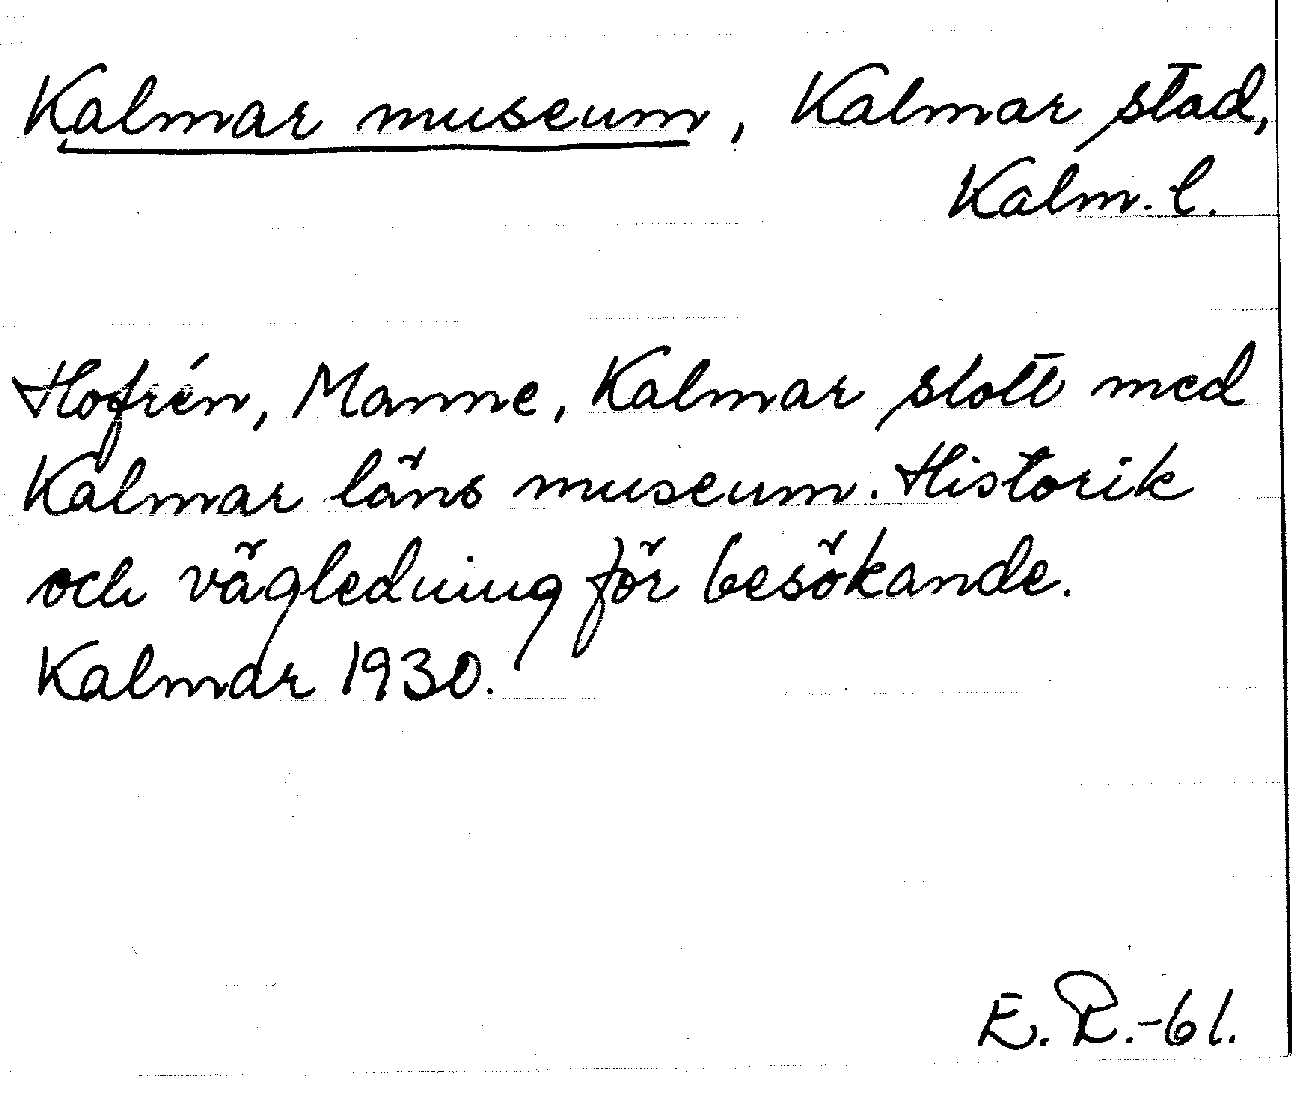 Kalmar museum, Kalmar stad,
Kalm. l.
Hofrén, Manne, Kalmar slott med
Kalmar läns museum. Historik
och vägledning för besökande.
Kalmar 1930.
E. R.-61.